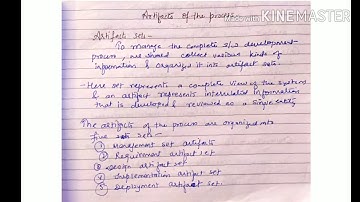 Made with
KINEMASTER
Artifacts of the process
Artifacts sets -
To manage the complete s/w development
process, we should collect various kinds of
information & organize it into artifact sets.
- Here set represents a complete view of the system
& an artifact represents interrelated information
that is developed & reviewed as a single entity
The artifacts of the process are organized into
five sets -
① Management set artifacts
② Requirement artifact set
③ Design artifact set
④ Implementation artifact set
⑤ Deployment artifact set.